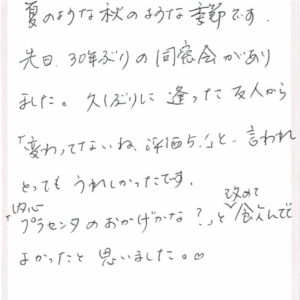 夏のような秋のような季節です.
先日.30年ぶりの同窓会があり
ました。久しぶりに逢った友人から
「変わってないね.評価5.」と.言われ
とってもうれしかったです.
「内心
プラセンタのおかげかな?」と改めて飲んで
よかったと思いました。♡